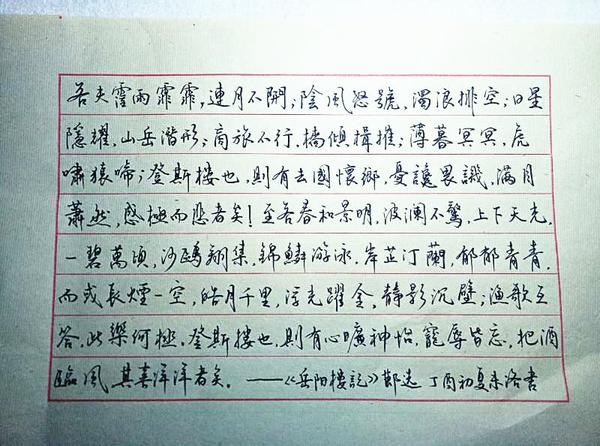 若夫霪雨霏霏,連月不開;陰風怒號,濁浪排空;日星
隱耀,山岳潛形;商旅不行,檣傾楫摧;薄暮冥冥,虎
嘯猿啼;登斯樓也,則有去國懷鄉,憂讒畏譏,滿目
蕭然,感極而悲者矣!至若春和景明,波瀾不驚,上下天光,
一碧萬頃,沙鷗翔集,錦鱗游泳,岸芷汀蘭,郁郁青青,
而或長煙一空,皓月千里,浮光躍金,靜影沉璧;漁歌互
答,此樂何極,登斯樓也,則有心曠神怡,寵辱皆忘,把酒
臨風,其喜洋洋者矣。——《岳阳樓記》節选 丁酉初夏洛書